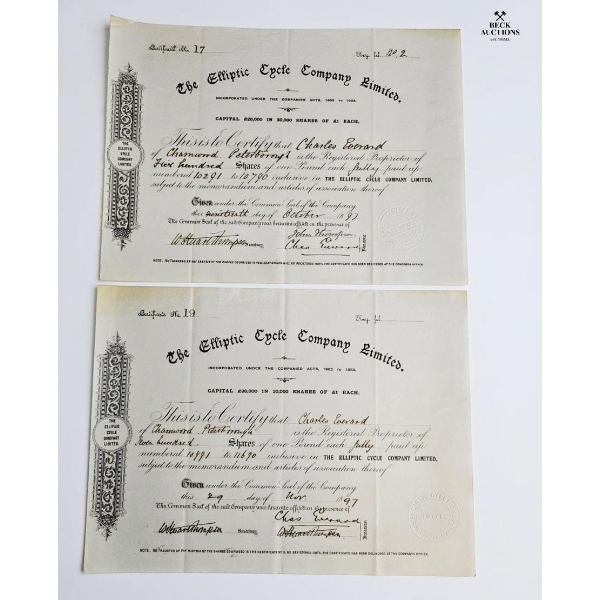 BECK
AUCTIONS
Certificate No. 17
Reg. fol. No 2
The Elliptic Cycle Company Limited.
INCORPORATED UNDER THE COMPANIES ACTS, 1862 to 1893.
CAPITAL £20,000 IN 20,000 SHARES OF £1 EACH.
THE
ELLIPTIC
CYCLE
COMPANY
LIMITED.
This is to Certify that Charles Everard
of Charnwood Peterborough is the Registered Proprietor of
Five hundred Shares of One Pound each fully paid up
numbered 10291 to 10790 inclusive in THE ELLIPTIC CYCLE COMPANY LIMITED,
subject to the memorandum and articles of association thereof
Given under the Common Seal of the Company
this nineteenth day of October 1897
The Common Seal of the said Company was hereunto affixed in the presence of
John Thompson
W Stuart Thompson Secretary. Chas Everard
Certificate No. 19
Reg. fol.
The Elliptic Cycle Company Limited.
INCORPORATED UNDER THE COMPANIES ACTS, 1862 to 1893.
CAPITAL £20,000 IN 20,000 SHARES OF £1 EACH.
THE
ELLIPTIC
CYCLE
COMPANY
LIMITED.
This is to Certify that Charles Everard
of Charnwood Peterborough is the Registered Proprietor of
Seven hundred Shares of One Pound each fully paid up
numbered 10991 to 11690 inclusive in THE ELLIPTIC CYCLE COMPANY LIMITED,
subject to the memorandum and articles of association thereof
Given under the Common Seal of the Company
this 29 day of Nov. 1897
The Common Seal of the said Company was hereunto affixed in the presence of
Chas Everard
W Stuart Thompson Secretary. W Stuart Thompson